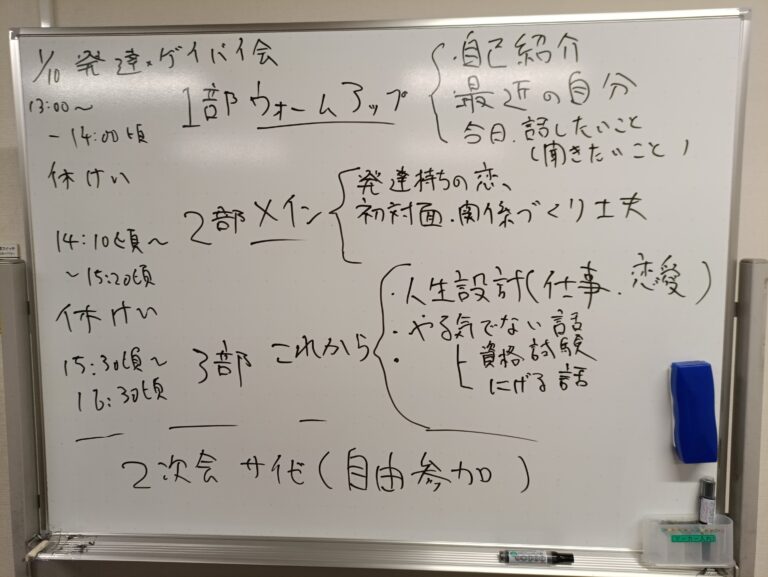 1/10 発達×ゲイバイ会
13:00～
－14:00頃
1部 ウォームアップ
・自己紹介
最近の自分
今日、話したいこと
(聞きたいこと)
休けい
14:10頃～
～15:20頃
2部 メイン
発達持ちの恋、
初対面・関係づくり工夫
休けい
15:30頃～
16:30頃
3部 これから
・人生設計(仕事・恋愛)
・やる気でない話
・
資格試験
にげる話
2次会 サイゼ(自由参加)